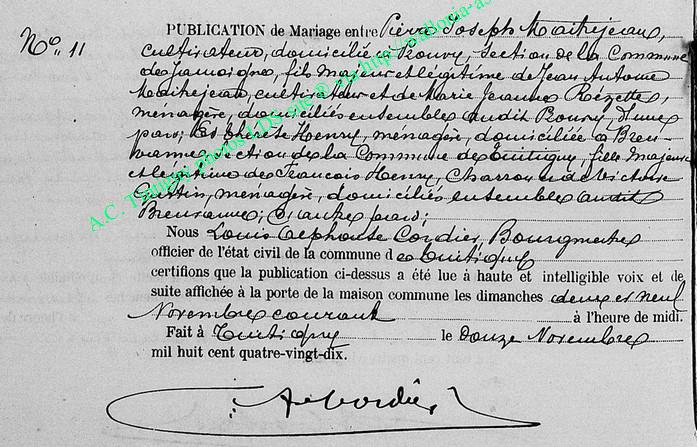 No. 11
PUBLICATION de Mariage entre Pierre Joseph Maitrejean,
cultivateur, domicilié à Prouvy, section de la Commune
de Jamoigne, fils majeur et légitime de Jean Antoine
Maitrejean, cultivateur et de Marie Jeanne Rézette,
ménagère, domiciliés ensembles audit Prouvy, d'une
part; Et Thérèse Henry, ménagère, domiciliée à Breu-
vanne, section de la Commune de Tintigny, fille majeure
et légitime de François Henry, Charron et de Victoire
ménagère, domiciliés ensembles audit
Breuvanne, d'autre part;
Nous Louis Alphonse Cordier, Bourgmestre
officier de l'état civil de la commune de Tintigny
certifions que la publication ci-dessus a été lue à haute et intelligible voix et de
suite affichée à la porte de la maison commune les dimanches deux et neuf
Novembre courant à l'heure de midi.
Fait à Tintigny le Douze Novembre
mil huit cent quatre-vingt-dix.
A. Cordier
A.C. Tintigny photos LDS site ® via http://